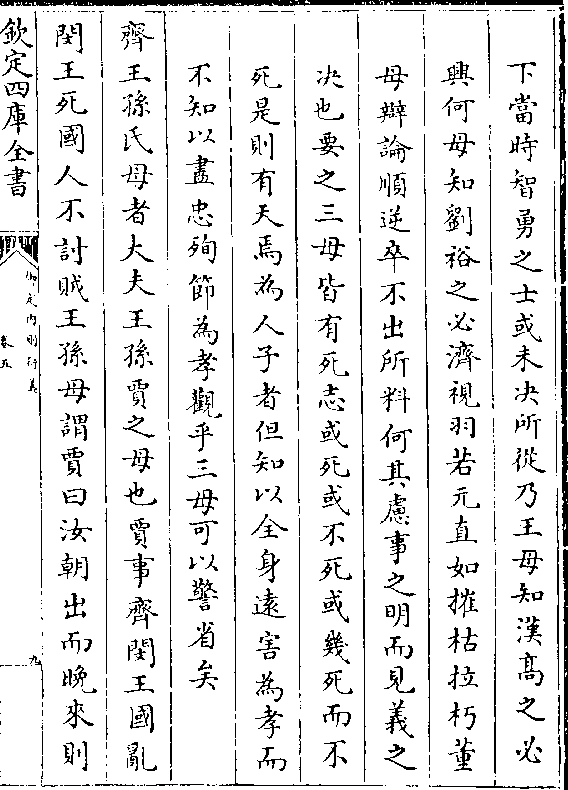 下當時智勇之士或未决所從乃王母知漢髙之必
興何母知劉裕之必濟視羽若元直如摧枯拉朽董
母辯論順逆卒不出所料何其慮事之明而見義之
决也要之三母皆有死志或死或不死或幾死而不
死是則有天焉為人子者但知以全身遠害為孝而
不知以盡忠殉節為孝觀乎三母可以警省矣
齊王孫氏母者大夫王孫賈之母也賈事齊閔王國亂
閔王死國人不討賊王孫母謂賈曰汝朝出而晚來則
欽定四庫全書
御定内則衍義
卷五
九